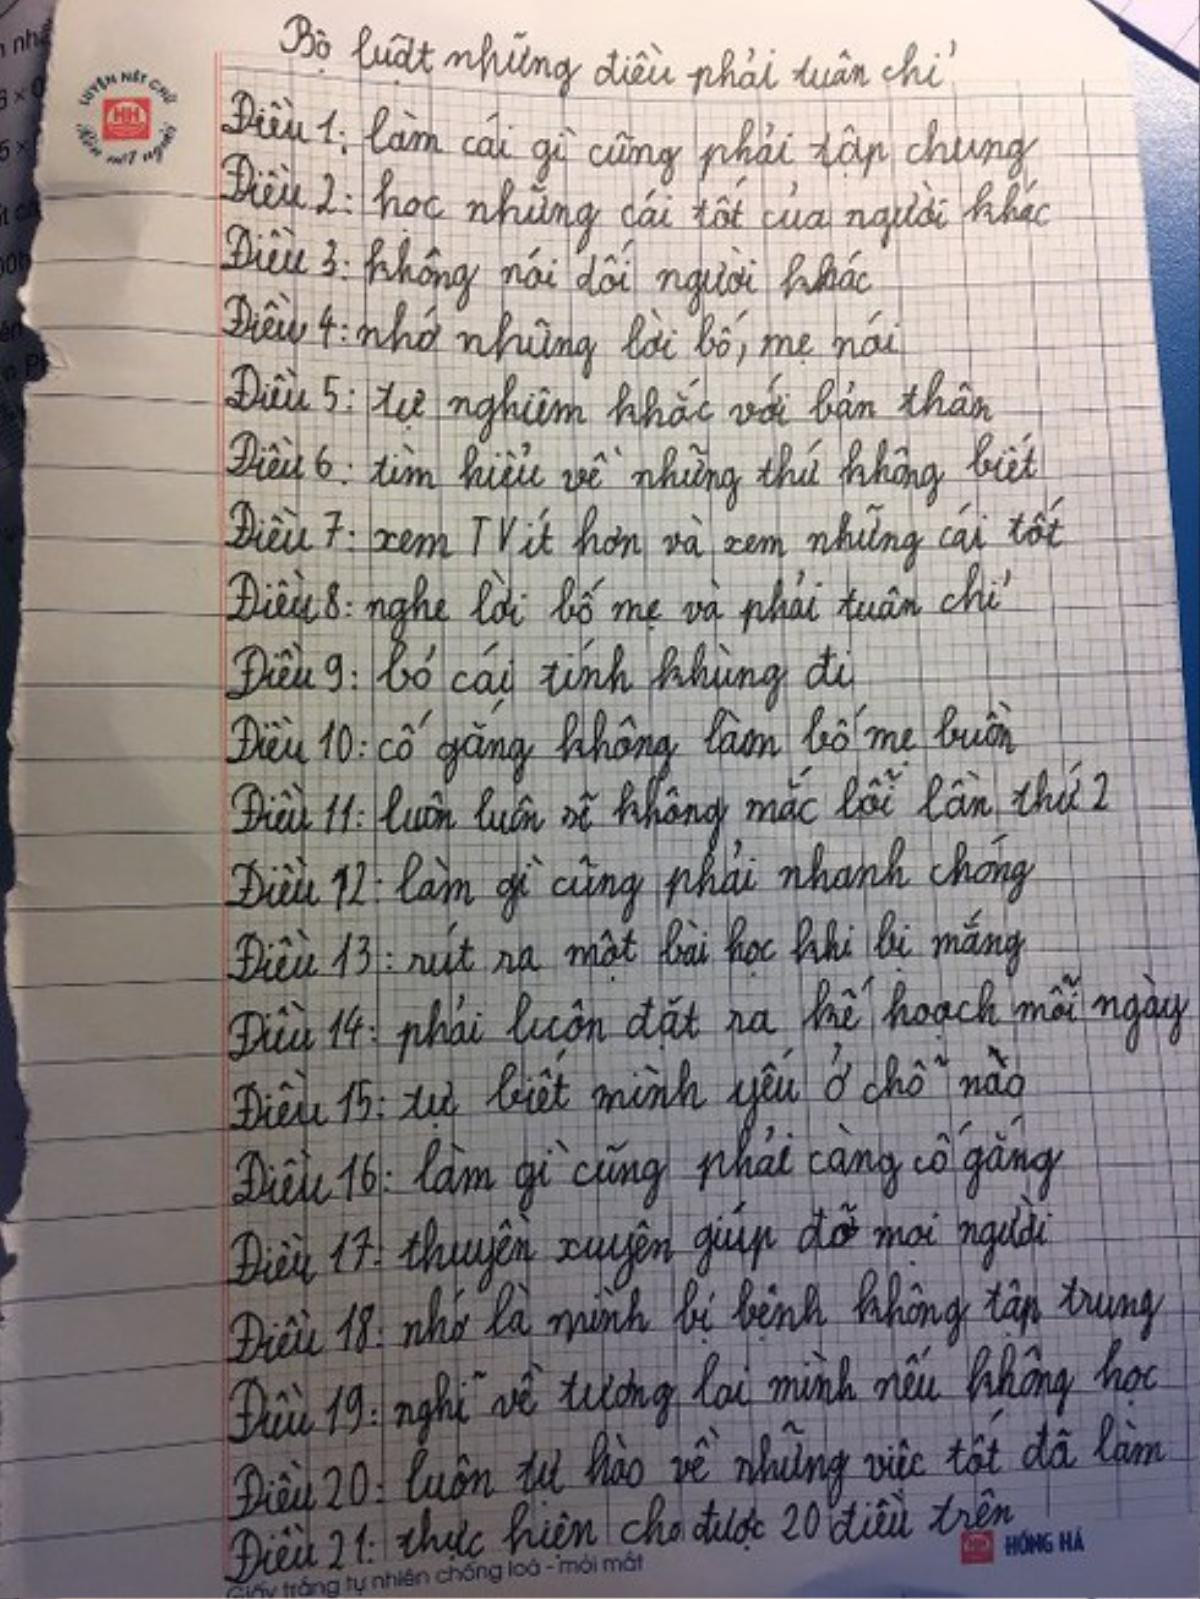 Bộ luật những điều phải tuân chỉ
LUYỆN NÉT CHỮ
HH
Rèn nết người
Điều 1: làm cái gì cũng phải tập chung
Điều 2: học những cái tốt của người khác
Điều 3: không nói dối người khác
Điều 4: nhớ những lời bố, mẹ nói
Điều 5: tự nghiêm khắc với bản thân
Điều 6: tìm hiểu về những thứ không biết
Điều 7: xem TV ít hơn và xem những cái tốt
Điều 8: nghe lời bố mẹ và phải tuân chỉ
Điều 9: bỏ cái tính khùng đi
Điều 10: cố gắng không làm bố mẹ buồn
Điều 11: luôn luôn sẽ không mắc lỗi lần thứ 2
Điều 12: làm gì cũng phải nhanh chóng
Điều 13: rút ra một bài học khi bị mắng
Điều 14: phải luôn đặt ra kế hoạch mỗi ngày
Điều 15: tự biết mình yếu ở chỗ nào
Điều 16: làm gì cũng phải càng cố gắng
Điều 17: thuyền xuyên giúp đỡ mọi người
Điều 18: nhớ là mình bị bệnh không tập trung
Điều 19: nghĩ về tương lai mình nếu không học
Điều 20: luôn tự hào về những việc tốt đã làm
Điều 21: thực hiện cho được 20 điều trên
HH HỒNG HÀ
Giấy trắng tự nhiên chống loá - mỏi mắt